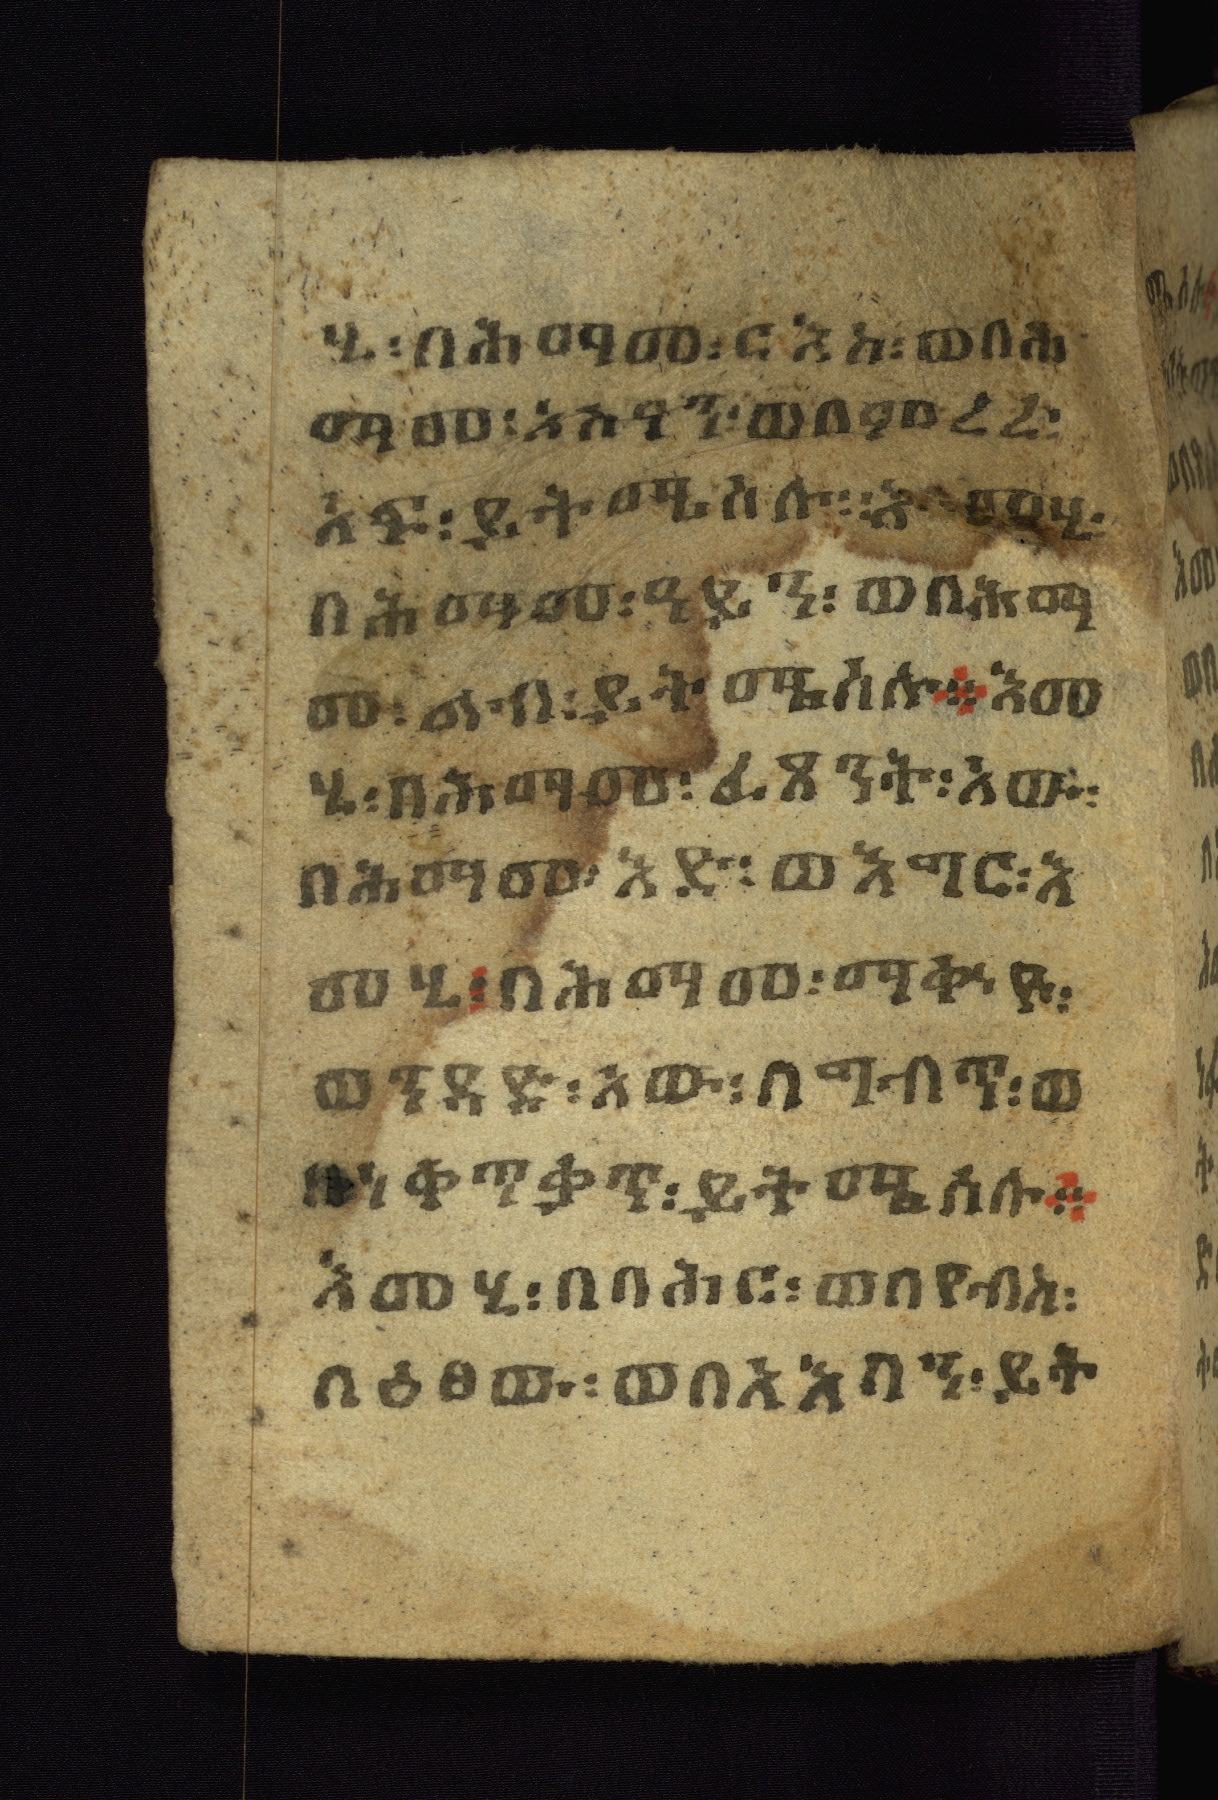 ሂ፡በሕማመ፡ርእሱ፡ወበሕ
ማመ፡እስዓን፡ወበማዕረረ፡
አፍ፡ይትሜሰሉ፡እመሂ፡
በሕማመ፡ዓይን፡ወበሕማ
መ፡ልብ፡ይትሜሰሉ፨እመ
ሂ፡በሕማመ፡ፈጸንት፡አው፡
በሕማመ፡እድ፡ወእግር፡እ
መሂ፡በሕማመ፡ማቅየ፡
ወንዳድ፡አው፡በግብጥ፡ወ
ቍጥቃጥ፡ይትሜሰሉ፨
እመሂ፡በባሕር፡ወበየብስ፡
በፅፀው፡ወበእእባን፡ይት